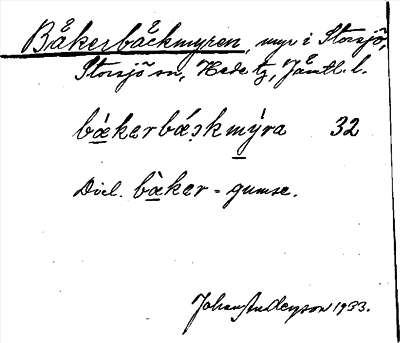 Båkerbäckmyren, myr i Storsjö,
Storsjö sn, Hede tg, Jämtl. l.
bàkerbáskmýra 32
Dial. bàker = gumse.
Johan Anderson 1933.